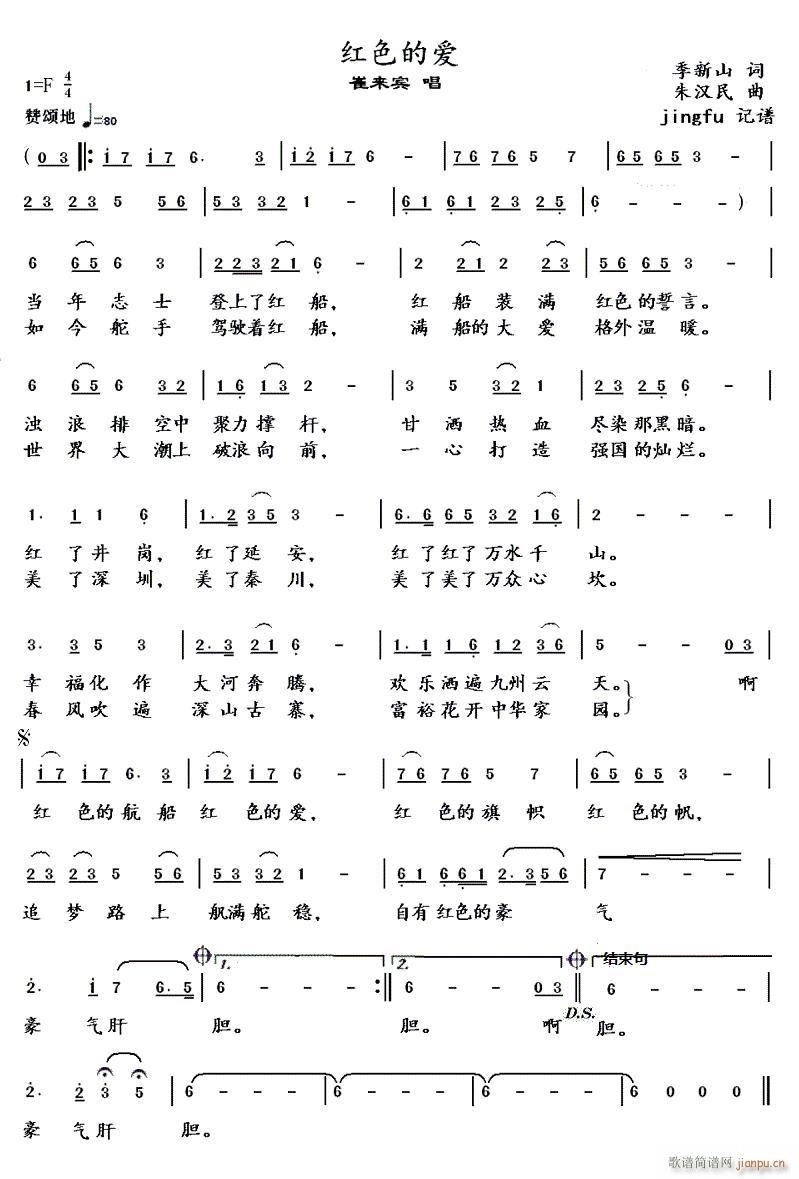 红色的爱
1=F 4/4
崔来宾 唱
季新山 词
朱汉民 曲
赞颂地 ♩=80
jingfu 记谱
(0 3 ‖: i 7 i 7 6· 3 | i 2 i 7 6 - | 7 6 7 6 5 7 | 6 5 6 5 3 - |
2 3 2 3 5 5 6 | 5 3 3 2 1 - | 6 1 6 1 2 3 2 5 | 6 - - - ) |
6 6 5 6 3 | 2 2 3 2 1 6 - | 2 2 1 2 2 3 | 6 5 6 5 3 - |
当 年 志 士 登上了红 船， 红 船 装 满 红色的誓言。
如 今 舵 手 驾驶着红 船， 满 船的大 爱 格外温 暖。
6 6 5 6 3 2 | 1 6 1 3 2 - | 3 5 3 2 1 | 2 3 2 5 6 - |
浊 浪 排 空中 聚力撑 杆， 甘 洒 热 血 尽染那黑暗。
世 界 大 潮上 破浪向 前， 一 心 打 造 强国的灿烂。
1· 1 1 6 | 1· 2 3 5 3 - | 6· 6 6 5 3 2 1 6 | 2 - - - |
红 了井 岗，红了延安， 红了红了万水千 山。
美 了深 圳，美了秦川， 美了美了万众心 坎。
3· 3 5 3 | 2· 3 2 1 6 - | 1· 1 1 6 1 2 3 6 | 5 - - 0 3 |
幸 福化 作 大河奔 腾， 欢乐洒遍九州云 天。 啊
春 风吹 遍 深山古 寨， 富裕花开中华家 园。
i 7 i 7 6· 3 | i 2 i 7 6 - | 7 6 7 6 5 7 | 6 5 6 5 3 - |
红 色的 航 船 红 色的 爱， 红 色的 旗 帜 红 色的 帆，
2 3 2 3 5 5 6 | 5 3 3 2 1 - | 6 1 6 6 1 2· 3 5 6 | 7 - - - |
追 梦 路 上 舤满舵 稳， 自有红色的豪 气
1. 2. 结束句
2· i 7 6· 5 | 6 - - - :‖ 6 - - 0 3 ‖ 6 - - - |
D.S.
豪 气肝 胆。 胆。 啊 胆。
2· 2 3 5 | 6 - - - | 6 - - - | 6 - - - | 6 0 0 0 ‖
豪 气肝 胆。
歌谱简谱网 jianpu.cn